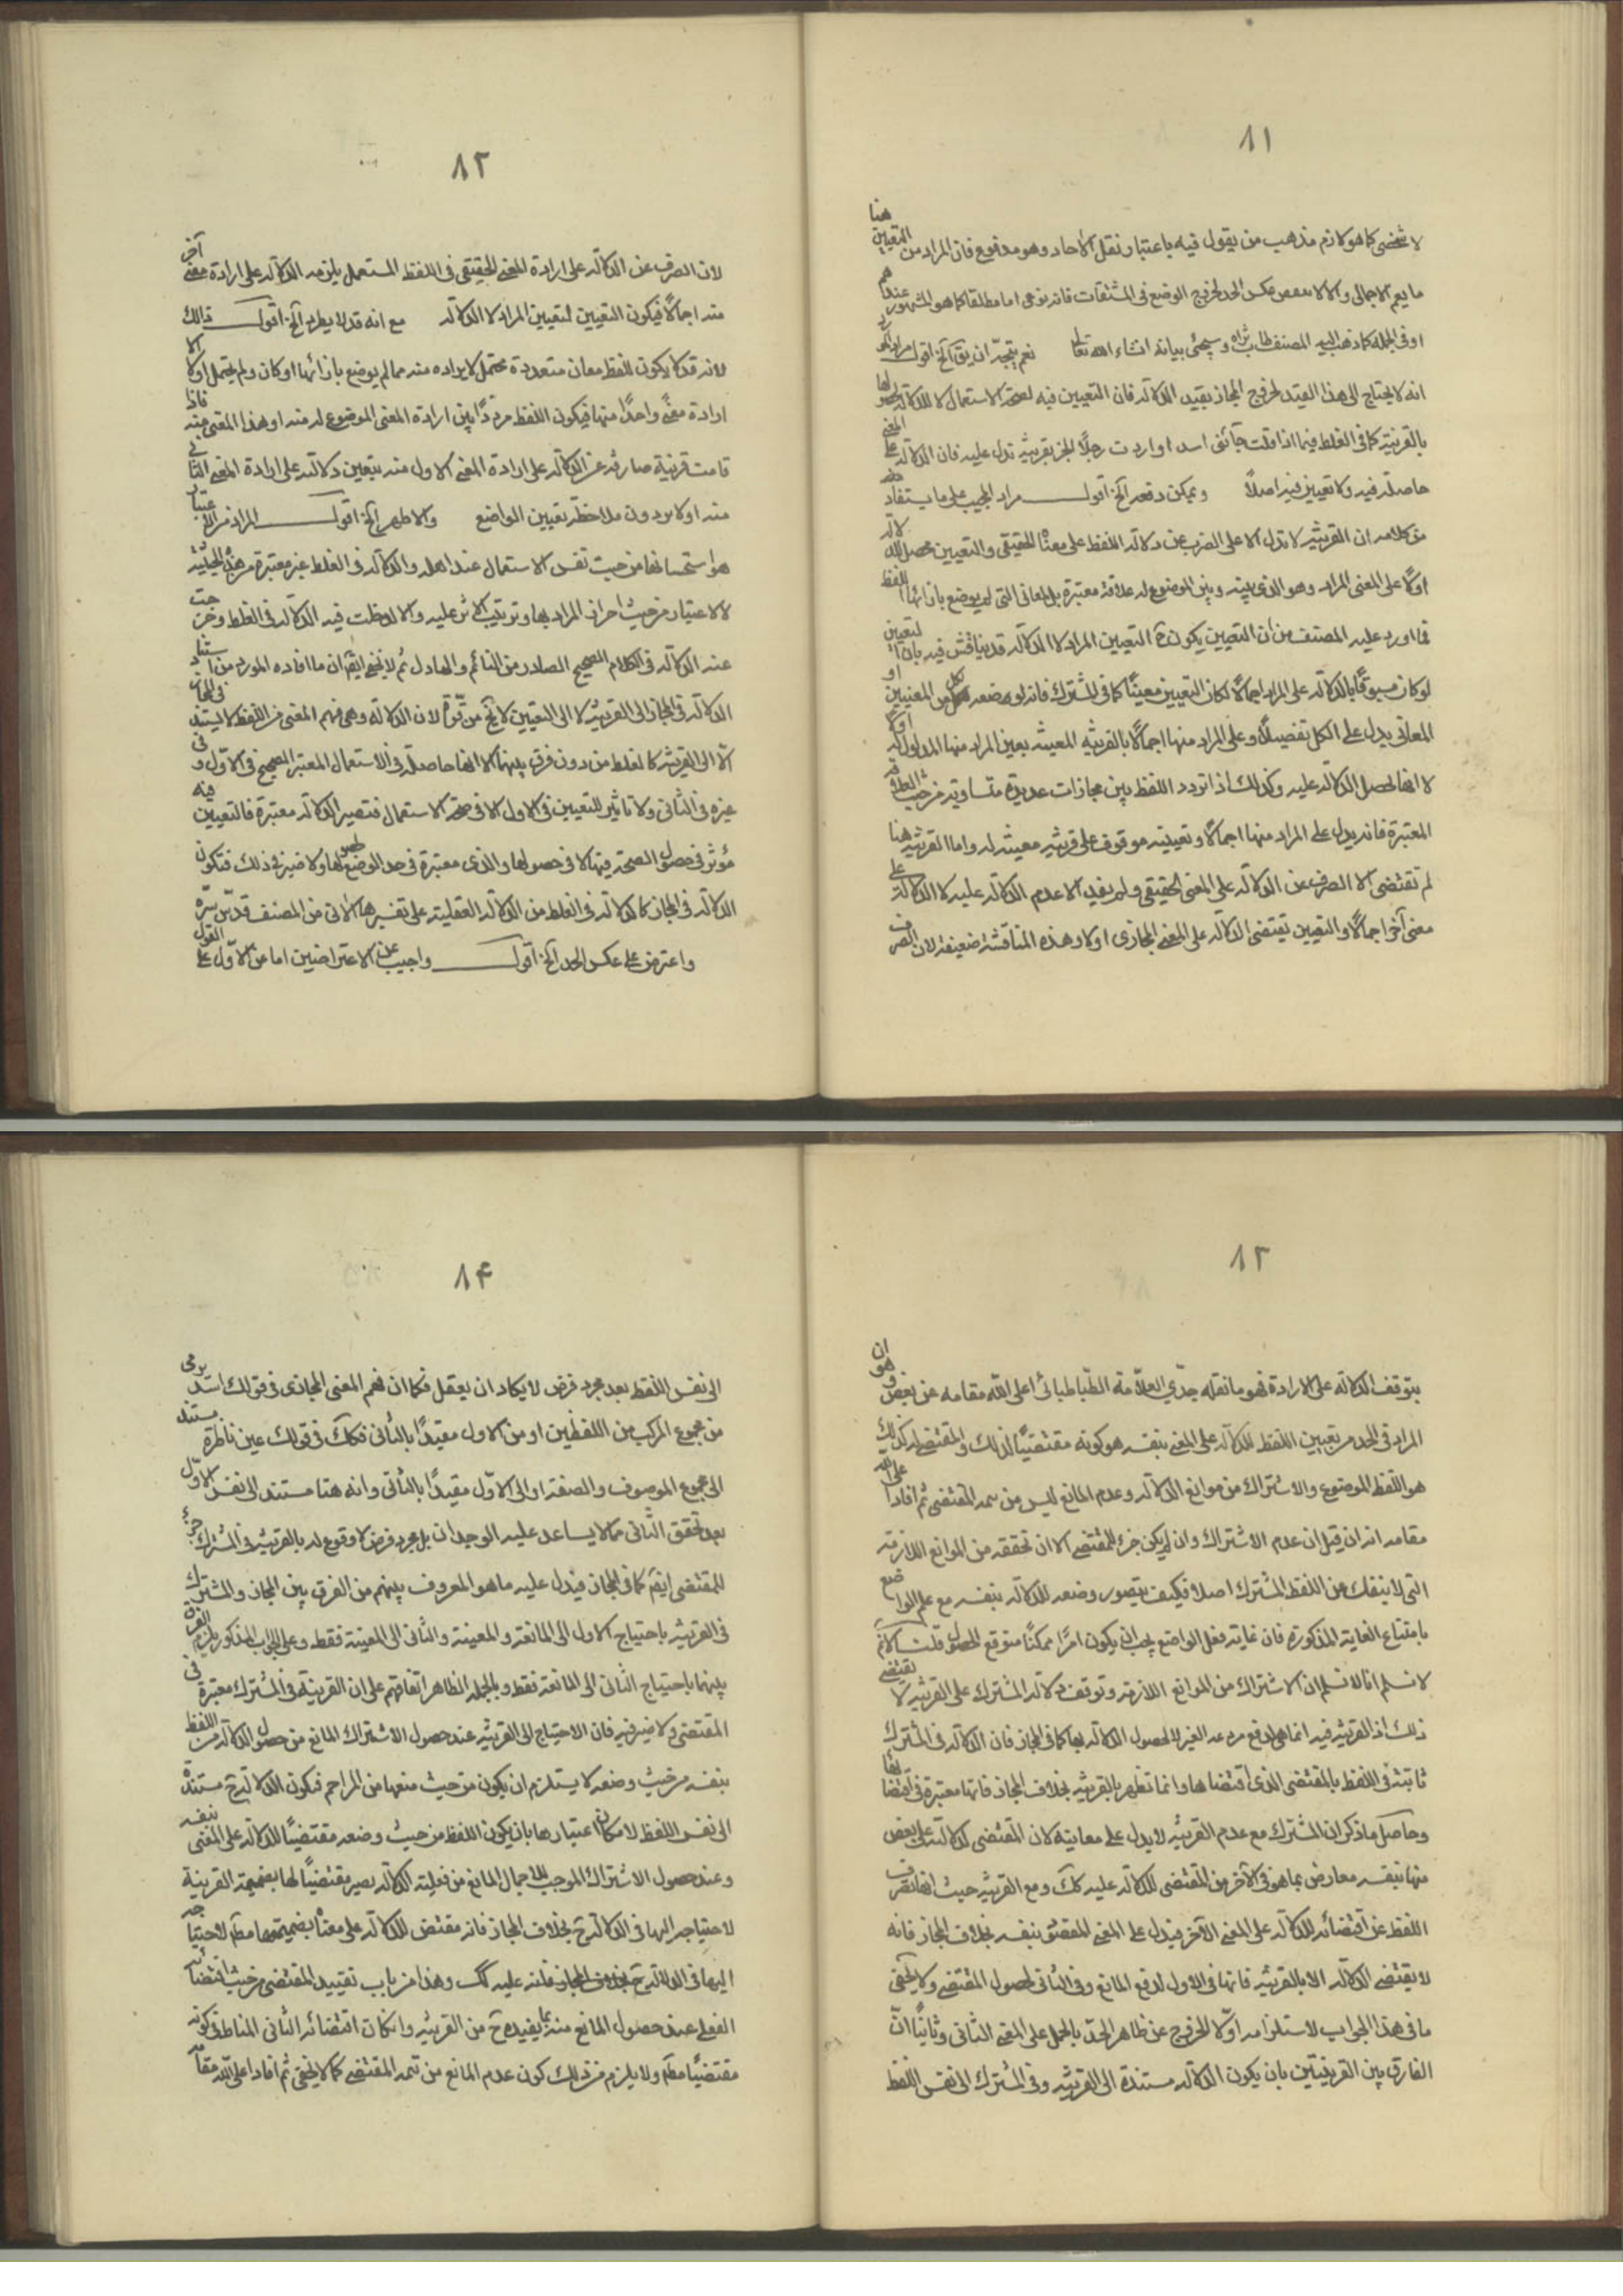 ٨١
لا شخصى كما هو لازم مذهب من يقول فيه باعتبار نقل الآحاد وهو مدفوع فان المراد من التعيين هنا
ما يعم الاجمالى والا لانتقض عكس الحد لخروج الوضع فى المشتقات فانه نوعى اما مطلقا كما هو المشهور عندهم
او فى الجملة كما ذهب اليه المصنف طاب ثراه وسيجئ بيانه انشاء الله تعالى نعم يتجه ان يق آلخ اقول مراد المورد
انه لا يحتاج الى هذا القيد لخروج المجاز بقيد الدلالة فان التعيين فيه لصحة الاستعمال لا للدلالة لحصولها
بالقرينة كما فى الغلط فيما اذا قلت جائنى اسد او اردت رجلًا لجز بقرينة تدل عليه فان الدلالة على المعنى
حاصلة فيه ولا تعيين فيه اصلًا ويمكن دفعه آلخ اقول مراد المجيب على ما يستفاد
من كلامه ان القرينة لا تدل الا على الصرف عن دلالة اللفظ على معناه الحقيقى والتعيين محصل للدلالة
اولًا على المعنى المراد وهو الذى بينه وبين الموضوع له علاقة معتبرة بل المعانى التى لم يوضع بازائها اللفظ
فما اورد عليه المصنف من ان التعيين يكون ح لتعيين المراد لا الدلالة قد يناقش فيه بان التعيين
لو كان مسبوقًا بالدلالة على المراد اجمالًا لكان التعيين معينًا كما فى المشترك فانه لوضعه لكل من المعنيين او
المعانى يدل على الكل تفصيلًا وعلى المراد منها اجمالًا بالقرينة المعينة يعين المراد منها المدلول له اولًا
لا انها يحصل الدلالة عليه وكذلك اذا تردد اللفظ بين مجازات عديدة متساوية من حيث العلاقة
المعتبرة فانه يدل على المراد منها اجمالًا وتعيينه موقوف على قرينة معينة له واما القرينة هنا
لم تقتضى الا الصرف عن الدلالة على المعنى الحقيقى ولم يفد الا عدم الدلالة عليه لا الدلالة على
معنى آخر اجمالًا والتعيين تقتضى الدلالة على المعنى المجازى اولا وهذه المناقشة ضعيفة لان الصرف
٨٢
لان الصرف عن الدلالة على ارادة المعنى الحقيقى فى اللفظ المستعمل يلزمه الدلالة على ارادة معنى آخر
منه اجمالًا فيكون التعيين لتعيين المراد لا الدلالة مع انه قد لا يطرد آلخ اقول ذلك
لانه قد لا يكون للفظ معان متعددة محتمل لا يراده منه مما لم يوضع بازائها او كان ولم يحتمل اولا الا
ارادة معنى واحدًا منها فيكون اللفظ مرددًا بين ارادة المعنى الموضوع له منه او هذا المعنى منه فاذا
قامت قرينة صارفة عن الدلالة على ارادة المعنى الاول منه يتعين دلالته على ارادة المعنى الثانى
منه اولا بدون ملاحظة تعيين الواضع والاظهر آلخ اقول المراد من الاعتبار
هو استحسانها من حيث نفس الاستعمال عند اهله والدلالة فى الغلط غير معتبرة من هذه الحيثية
لا الاعتبار من حيث احراز المراد بها وترتيب الاثر عليه والا للوحظت فيه الدلالة فى الغلط وخرجت
عنه الدلالة فى الكلام الصحيح الصادر من النائم والهازل ثم لا يخفى ايضًا ان ما افاده المورد من استناد
الدلالة فى المجاز الى القرينة لا الى التعيين لا يخ من قوة لان الدلالة وهى فهم المعنى من اللفظ لا يستند فى المجاز
الّا الى القرينة كالغلط من دون فرق بينهما الا انها حاصلة فى الاستعمال المعتبر الصحيح فى الاول وفى
غيره فى الثانى ولا تاثير للتعيين فى الاول الا فى صحة الاستعمال فتصير الدلالة معتبرة فالتعيين فيه
مؤثر فى حصول الصحة فيها لا فى حصولها والذى معتبرة فى حد الوضع حصولها ولا ضير فى ذلك فتكون
الدلالة فى المجاز كالدلالة فى الغلط من الدلالة العقلية على تفسيرها الآتى من المصنف قدّس سرّه
واعترض على عكس الحد آلخ اقول واجيب عن الاعتراضين اما عن الاوّل على القول
٨٣
بتوقف الدلالة على الارادة فهو ما نقله جدّي العلّامة الطّباطبائى اعلى الله مقامه عن بعض وهو ان
المراد فى الحد من تعيين اللفظ للدلالة على المعنى بنفسه هو كونه مقتضيًا لذلك والمقتضى له كذلك
هو اللفظ الموضوع والاشتراك من موانع الدلالة وعدم المانع ليس من تتمة المقتضى ثم افاد اعلى الله
مقامه انه ان قيل ان عدم الاشتراك وان لم يكن جزء للمقتضى الا ان تحققه من الموانع اللازمة
التى لا ينفك عن اللفظ المشترك اصلا فكيف يتصور وضعه للدلالة بنفسه مع علم الواضع
بامتناع الغاية المذكورة فان غاية فعل الواضع يجب ان يكون امرًا ممكنًا متوقع الحصول قلت
لا نسلم انا لا نسلم ان الاشتراك من الموانع اللازمة وتوقف دلالة المشترك على القرينة لا يقتضى
ذلك اذ القرينة فيه انما هى لدفع مزاحمة الغير لا لحصول الدلالة بها كما فى المجاز فان الدلالة فى المشترك
ثابتة فى اللفظ بالمقتضى الذى اقتضاها وانما تظهر بالقرينة بخلاف المجاز فانها معتبرة فى اقتضائها
وحاصل ما ذكر ان المشترك مع عدم القرينة لا يدل على معانيه لان المقتضى لدلالته على بعض
منها بنفسه معارض بما هو فى الآخر من المقتضى للدلالة عليه كك ومع القرينة حيث انها تصرف
اللفظ عن اقتضائه للدلالة على المعنى الآخر فيدل على المعنى المقصود بنفسه بخلاف المجاز فانه
لا يقتضى الدلالة الا بالقرينة فانها فى الاول لدفع المانع وفى الثانى لحصول المقتضى ولا يخفى
ما فى هذا الجواب لاستلزامه اوّلا للخروج عن ظاهر الحدّ بالحمل على المعنى الثانى وثانيًا انّ
الفارق بين القرينتين بان يكون الدلالة مستندة الى القرينة وفى المشترك الى نفس اللفظ
٨۴
الى نفس اللفظ بعد مجرد فرض لا يكاد ان يعقل فكما ان فهم المعنى المجازى فى قولك اسد يرمى
من مجموع المركب من اللفظين او من الاول مقيدًا بالثانى فكك فى قولك عين ناظرة مستند
الى مجموع الموصوف والصفة او الى الاوّل مقيدًا بالثانى وانه هنا مستند الى نفس الاوّل
بعد تحقق الثانى مما لا يساعد عليه الوجدان بل مجرد فرض لا وقوع له بالقرينة فى المشترك جزء
للمقتضى ايضًا كما فى المجاز فيدل عليه ما هو المعروف بينهم من الفرق بين المجاز والمشترك
فى القرينة باحتياج الاول الى المانعة والمعينة والثانى الى المعينة فقط وعلى الجواب المذكور يلزم الفرق
بينهما باحتياج الثانى الى المانعة فقط وبالجملة الظاهر اتفاقهم على ان القرينة فى المشترك معتبرة فى
المقتضى ولا ضير فيه فان الاحتياج الى القرينة عند حصول الاشتراك المانع من حصول الدلالة من اللفظ
بنفسه من حيث وضعه لا يستلزم ان يكون من حيث منعها من المزاحم فيكون الدلالة ح مستندة
الى نفس اللفظ لا مكان اعتبارها بان يكون اللفظ من حيث وضعه مقتضيًا للدلالة على المعنى بنفسه
وعند حصول الاشتراك الموجب للاجمال المانع من فعلية الدلالة يصير مقتضيًا لها بضميمة القرينة
لاحتياجه اليها فى الدلالة ح بخلاف المجاز فانه مقتض للدلالة على معناه بضميمتها مطم لاحتياجه
اليها فى الدلالة عليه كك وهذا من باب تقييد المقتضى من حيث اقتضائه
الفعلى عند حصول المانع منه بما يفيده ح من القرينة وان كان اقتضائه الثانى المناط فى كونه
مقتضيًا مطم ولا يلزم من ذلك كون عدم المانع من تتمة المقتضى كما لا يخفى ثم افاد اعلى الله مقامه